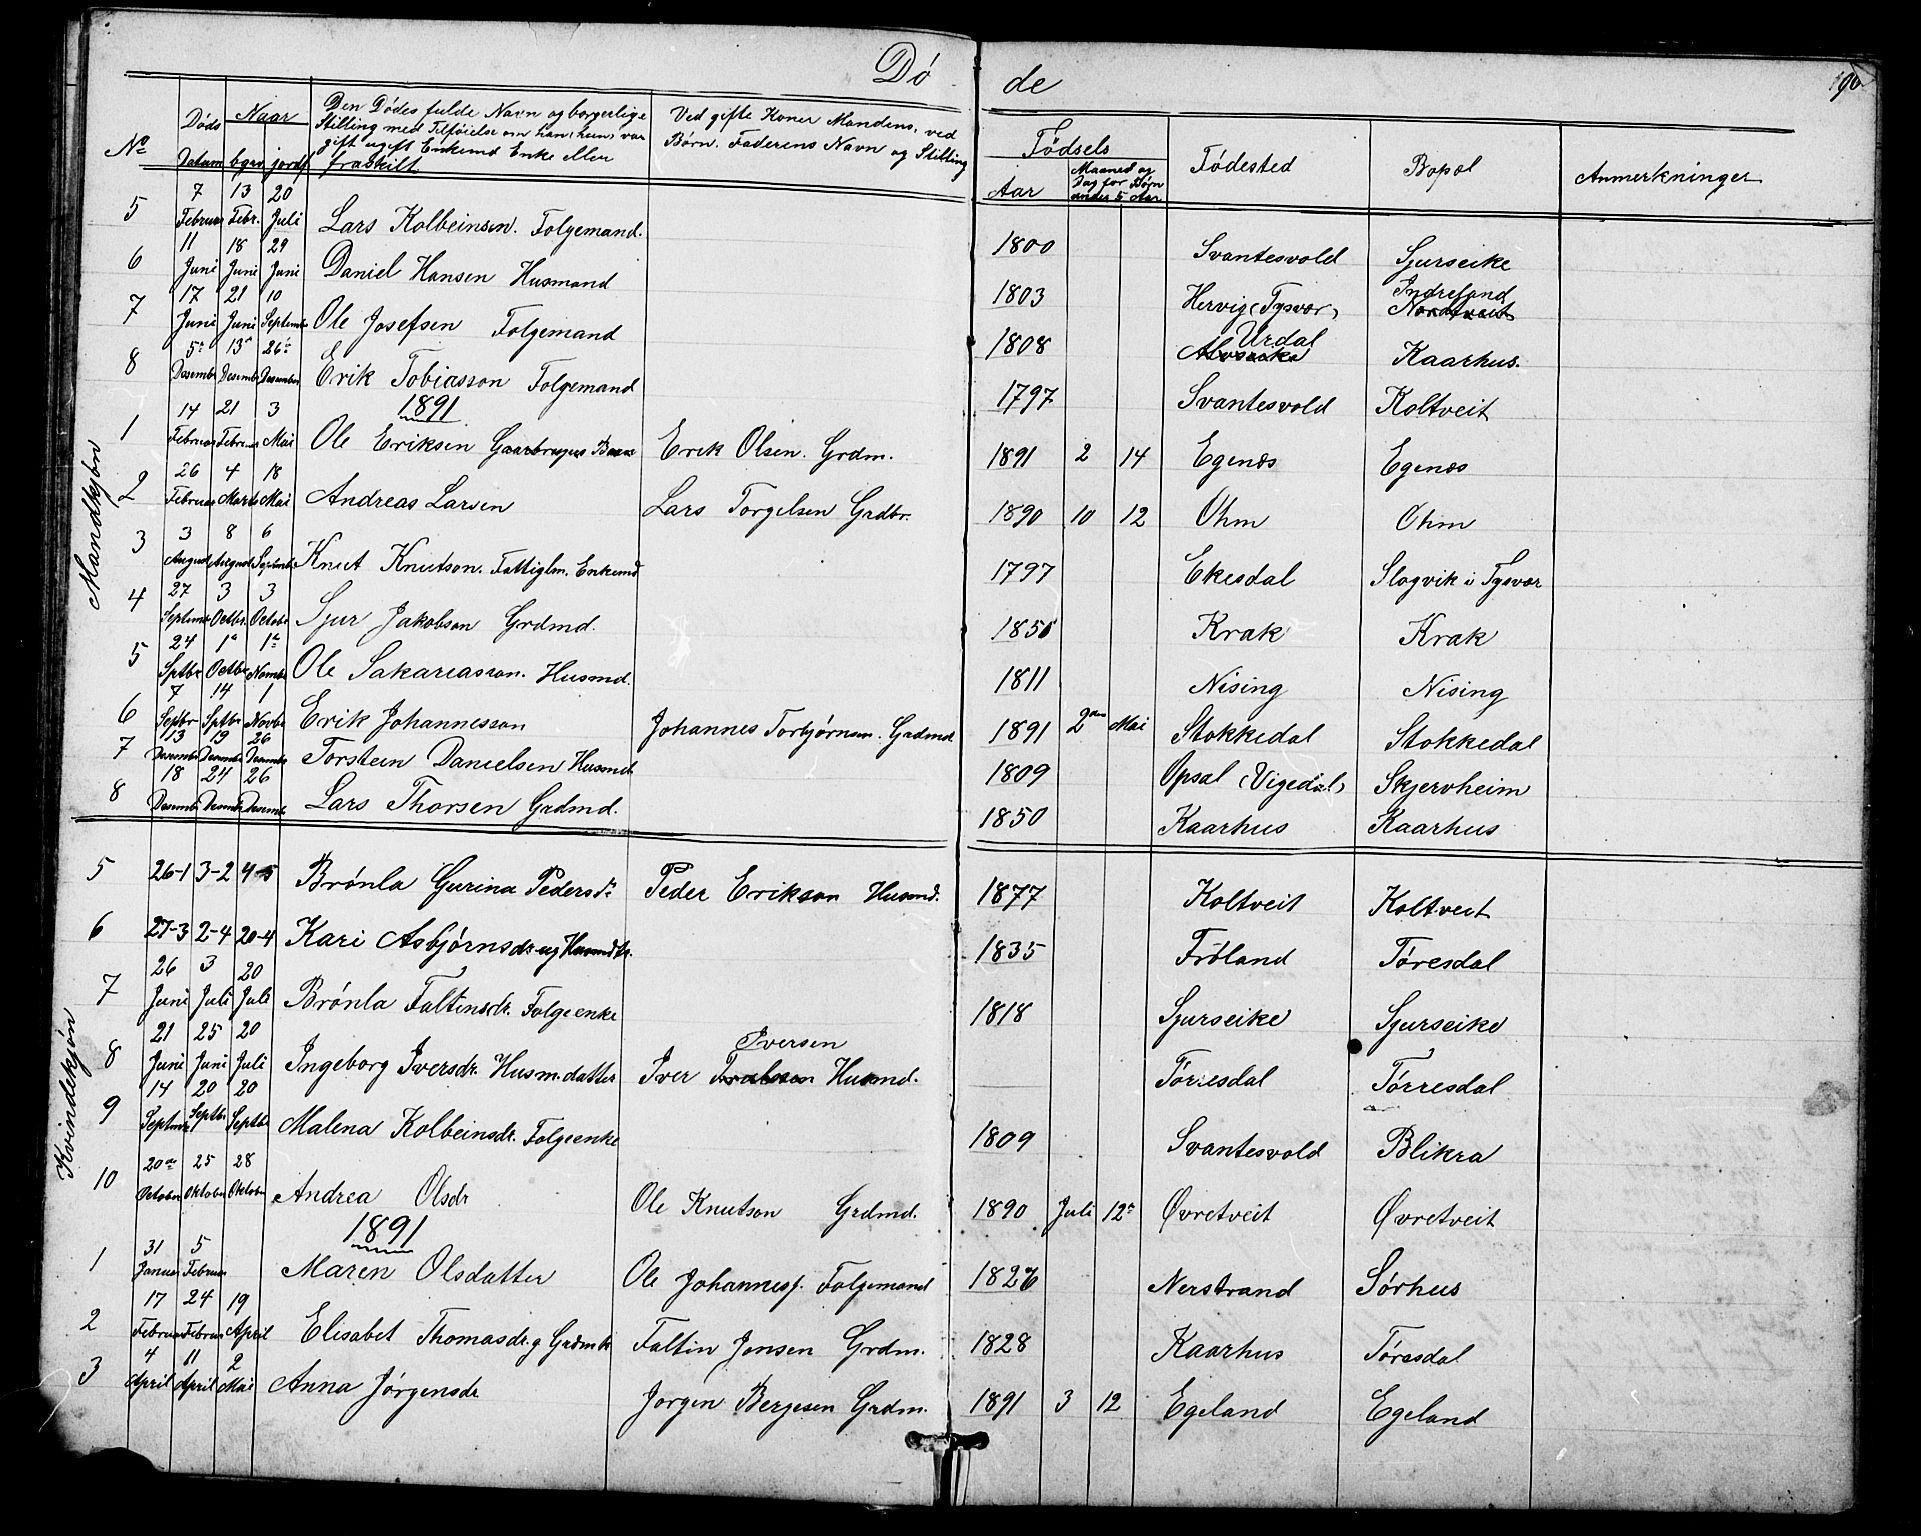 Døde
190
No
Døds Datum
Naar begr. jordf.
Den Dødes fulde Navn og borgerlige Stilling med Tilføielse om han (hun) var gift ugift Enkemd Enke eller fraskilt
Ved gifte Koner Mandens, ved Børn Faderens Navn og Stilling
Fødsels
Aar
Maaned og Dag for Børn under 5 Aar
Fødested
Bopæl
Anmerkninger
Mandkjøn
5 7 Februar 13 Febr. 20 Juli Lars Kolbeinsen. Folgemand. 1800 Svantesvold Sjurseike
6 11 Juni 18 Juni 29 Juni Daniel Hansen Husmand 1803 Hervig (Tysvør) Indreland Nordtveit
7 17 Juni 21 Juni 10 Septembr Ole Josefsen Folgemand 1808 Urdal Kaarhus.
8 5te Desembr 13 Desembr 26te Desember Erik Tobiasson Folgemand 1797 Svantesvold Koltveit
1891
1 14 Februar 21 Februar 3 Mai Ole Eriksen Gaarbrugers Barn Erik Olsen. Grdm. 1891 2 14 Egenæs Egenæs
2 26 Februar 4 Marts 18 Mai Andreas Larsen Lars Torgelsen Grdbr. 1890 10 12 Ohm Ohm
3 3 August 8 August 6 Septembr Knut Knutson. Fattiglm. Enkemd 1797 Ekesdal Slogvik i Tysvør
4 27 Septembr 3 Octbr. 3 Octobr Sjur Jakobson Grdmd. 1851 Krak Krak
5 24 Sptbr 1ste Octbr 1ste Novmbr Ole Sakariasson. Husmd. 1811 Nising Nising
6 7 Septbr 14 Sptbr 1 Novbr Erik Johannesson Johannes Torbjørnsen. Grdmd 1891 2den Mai Stokkedal Stokkedal
7 13 Desembr 19 Desembr 26 Desembr Torstein Danielsen Husmd. 1809 Opsal (Vigedal) Skjervheim
8 18 Desembr 24 Desembr 26 Desembr Lars Thorsen Grdmd. 1850 Kaarhus Kaarhus
Kvindekjøn
5 26-1 3-2 4-5 Brønla Gurina Pedersdr. Peder Erikson Husmd. 1877 Koltveit Koltveit
6 27-3 2-4 20-4 Kari Asbjørnsdr. ug Husmdtr. 1835 Frøland Tøresdal
7 26 Juni 3 Juli 20 Juli Brønla Faltinsdr. Folgeenke 1818 Sjurseike Sjurseike
8 21 Juni 25 Juni 20 Juli Ingeborg Iversdr. Husm.datter Iver Iversen Husmd. Tørresdal Tørresdal
9 14 Septmbr 20 Septbr 20 Septbr Malena Kolbeinsdr. Folgeenke 1809 Svantesvold Blikra
10 20de October 25 Oktober 28 Oktober Andrea Olsdr Ole Knutson Grdmd. 1890 Juli 12te Øvretveit Øvretveit
1891
1 31 Januar 5 Februar Maren Olsdatter Ole Johannesf. Folgemand 1826 Nerstrand Sørhus
2 17 Februar 24 Februar 19 April Elisabet Thomasdr. g Grdmk Faltin Jensen Grdm. 1828 Kaarhus Tøresdal
3 4 April 11 April 2 Mai Anna Jørgensdr Jørgen Berjesen Grdm. 1891 3 12 Egeland Egeland